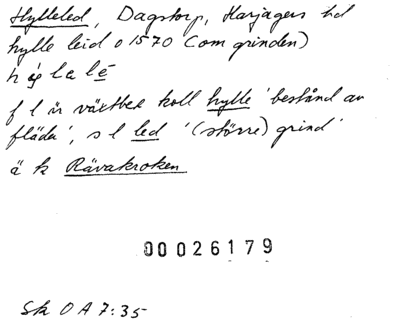 Hylleled, Dagstorp, Harjagers hd
hylle leid o 1570 (om grinden)
h y̨ l a l ē
f l är växtbet koll hylle 'bestånd av
fläder', s l led '(större) grind'
ä k Rävakroken
00026179
Sk OA 7:35